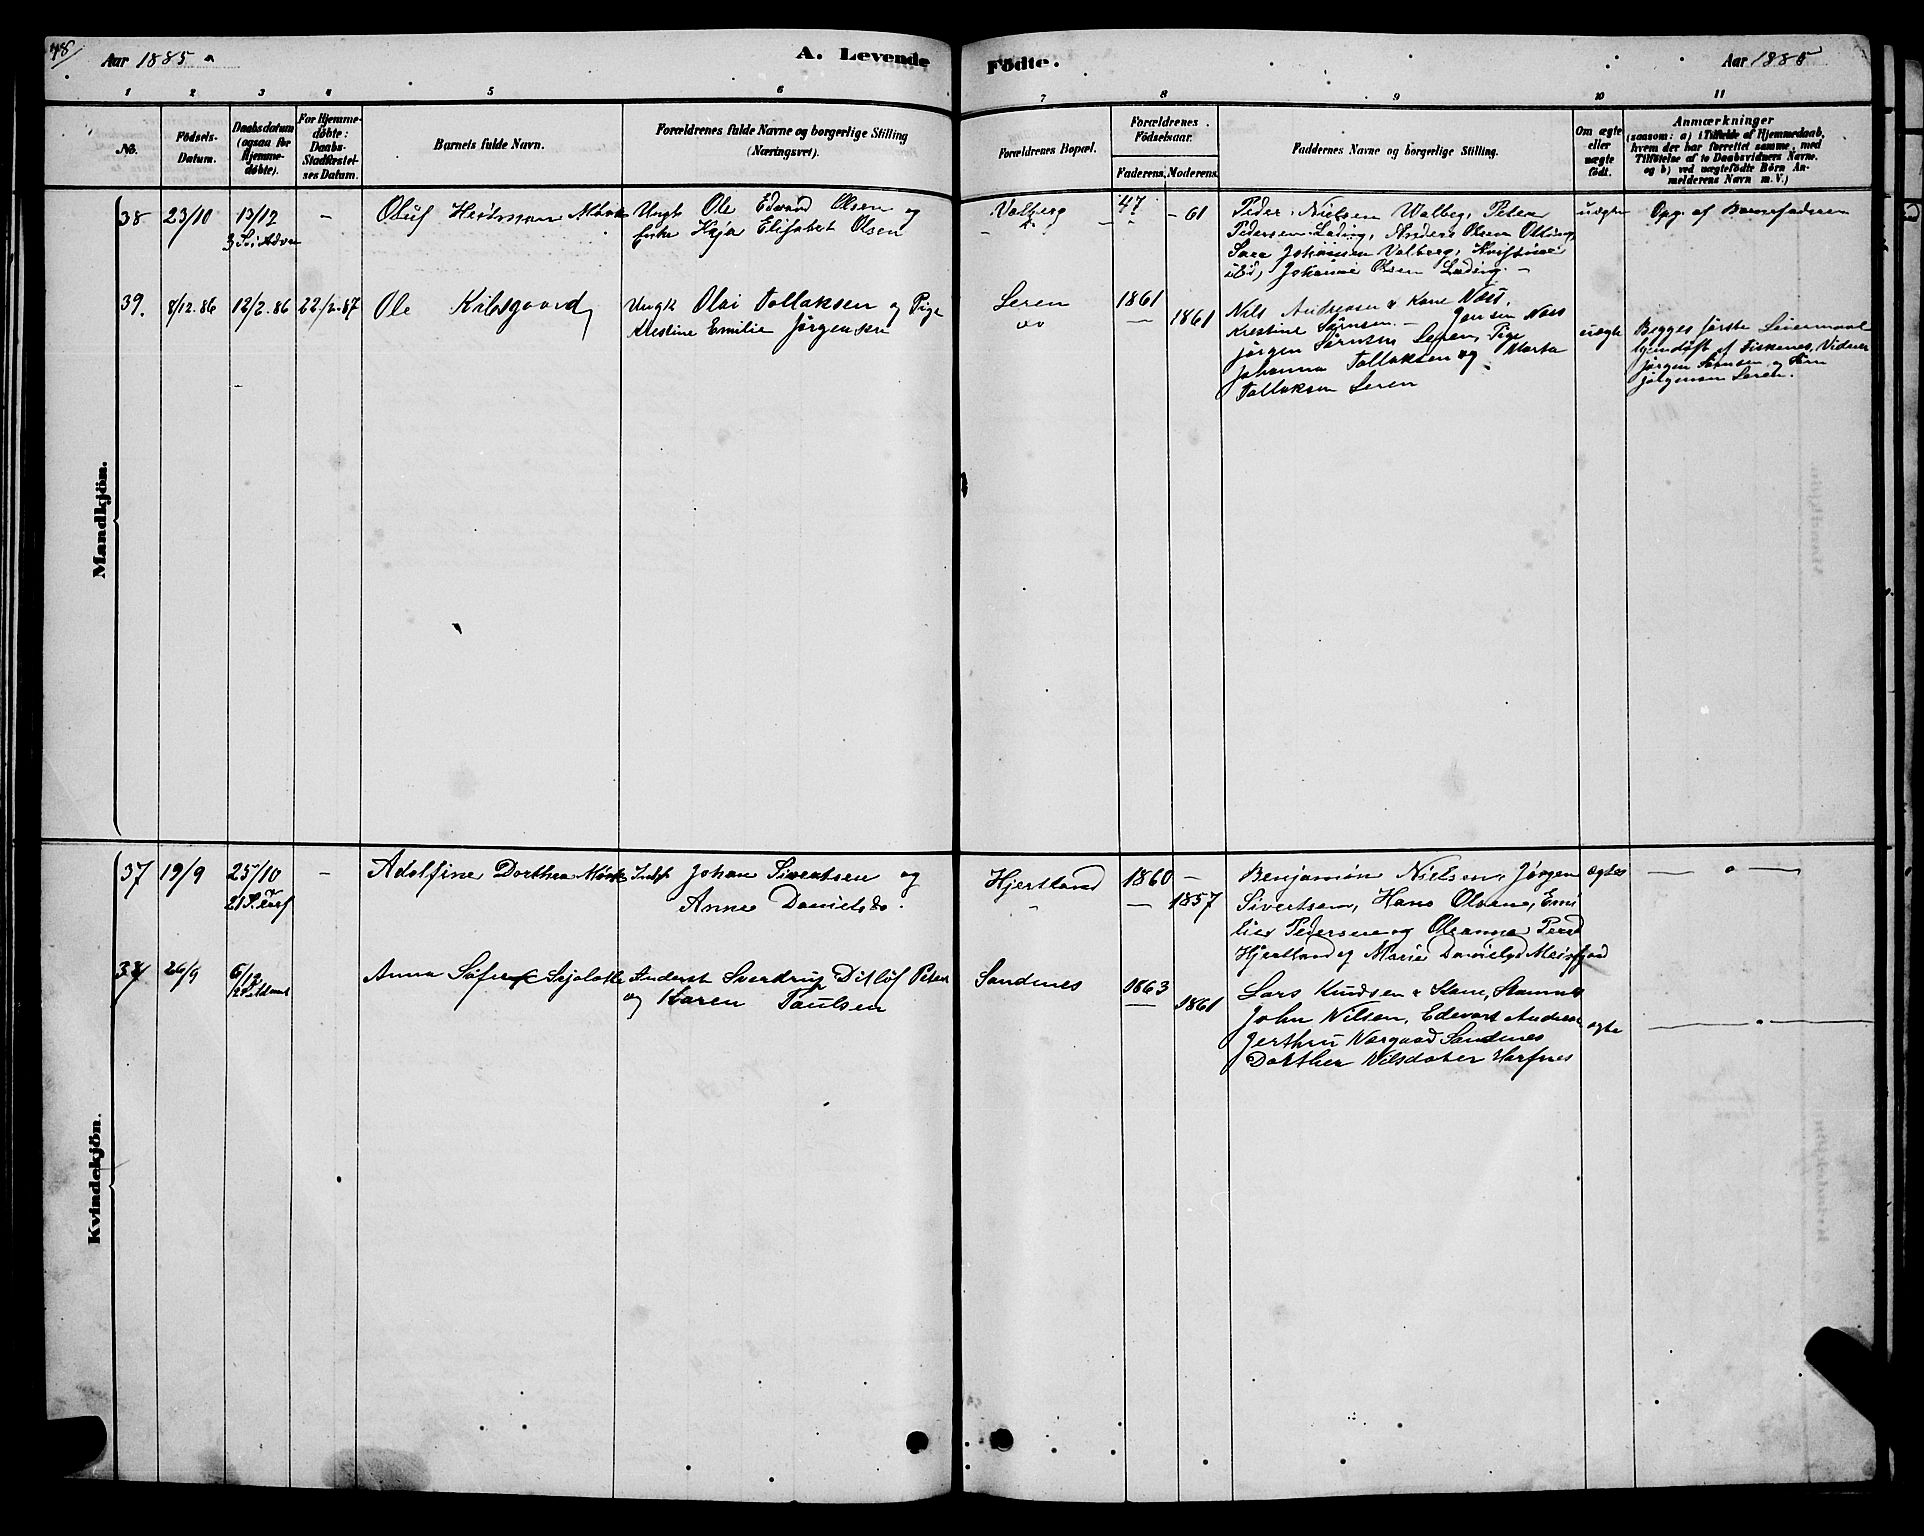 48/
Aar 1885
A. Levende
Födte.
Aar 1885
1 2 3 4 5 6 7 8 9 10 11
No.
Födsels-
Datum.
Daabsdatum
(ogsaa for
Hjemme-
döbte).
For Hjemme-
döbte:
Daabs-
Stadfæstel-
ses Datum.
Barnets fulde Navn.
Forældrenes fulde Navne og borgerlige Stilling
(Næringsvei).
Forældrenes Bopæl.
Forældrenes
Födselsaar.
Faderens. Moderens.
Faddernes Navne og borgerlige Stilling.
Om ægte
eller
uægte
födt.
Anmærkninger
(saasom: a) i Tilfælde af Hjemmedaab,
hvem der har forrettet samme, med
Tilföielse af to Daabsvidners Navne.
og b) ved uægtefödte Börn An-
melderens Navn m. V.)
Mandkjön.
38 23/10 13/12 -
3 S. i Adv
Oluf
Ungk Ole Edvard Olsen og
Enke Kaja Elisabet Olsen
Valberg
47
- 61
Peder Nielsen Valberg, Peter
Pedersen Lading, Anders Olsen
Sara Johansen Valberg,
ibid, Johanne Olsen Lading -
uægte
Opg. af Barnefaderen
39. 8/12.86 12/2.86 22/2.87
Ole Kilsgaard
Ungk Olai Tollaksen og Pige
Kristine Emilie Jörgensen
Leren
1861
1861
Nils Andersen & Kone Næss,
Kristine Sörnsen - Jensen Næss
Jörgen Sörnsen Leren, Pige
Johanna Tollaksen og Marta
Tollaksen Leren
uægte
Begges förste Leiermaal
hjemdöbt af Vidner
Jörgen Sörnsen og
Jörgensen Leren.
Kvindekjön.
37 19/9 25/10 -
21 S. e. Tref
Adolfine Dorthea
Indst Johan Sivertsen og
Anne Danielsd.
Hjertland
1860 -
- 1857
Benjamin Nielsen, Jörgen
Sivertsen, Hans Olsen, Emi
lie Pedersen og Oleanna Peres
Hjertland og Marie Danielsd
ægte
38 26/9 6/12
2 S. Advent
Anna Sofie
Inderst Sverdrup Ditlöf Peters
og Karen Paulsen
Sandnes
1863
1861
Lars Knudsen & Kone, Stamnes
John Nilsen, Edevart Anderse
Jerthru Sandnes
Dorthea Nilsdater
ægte